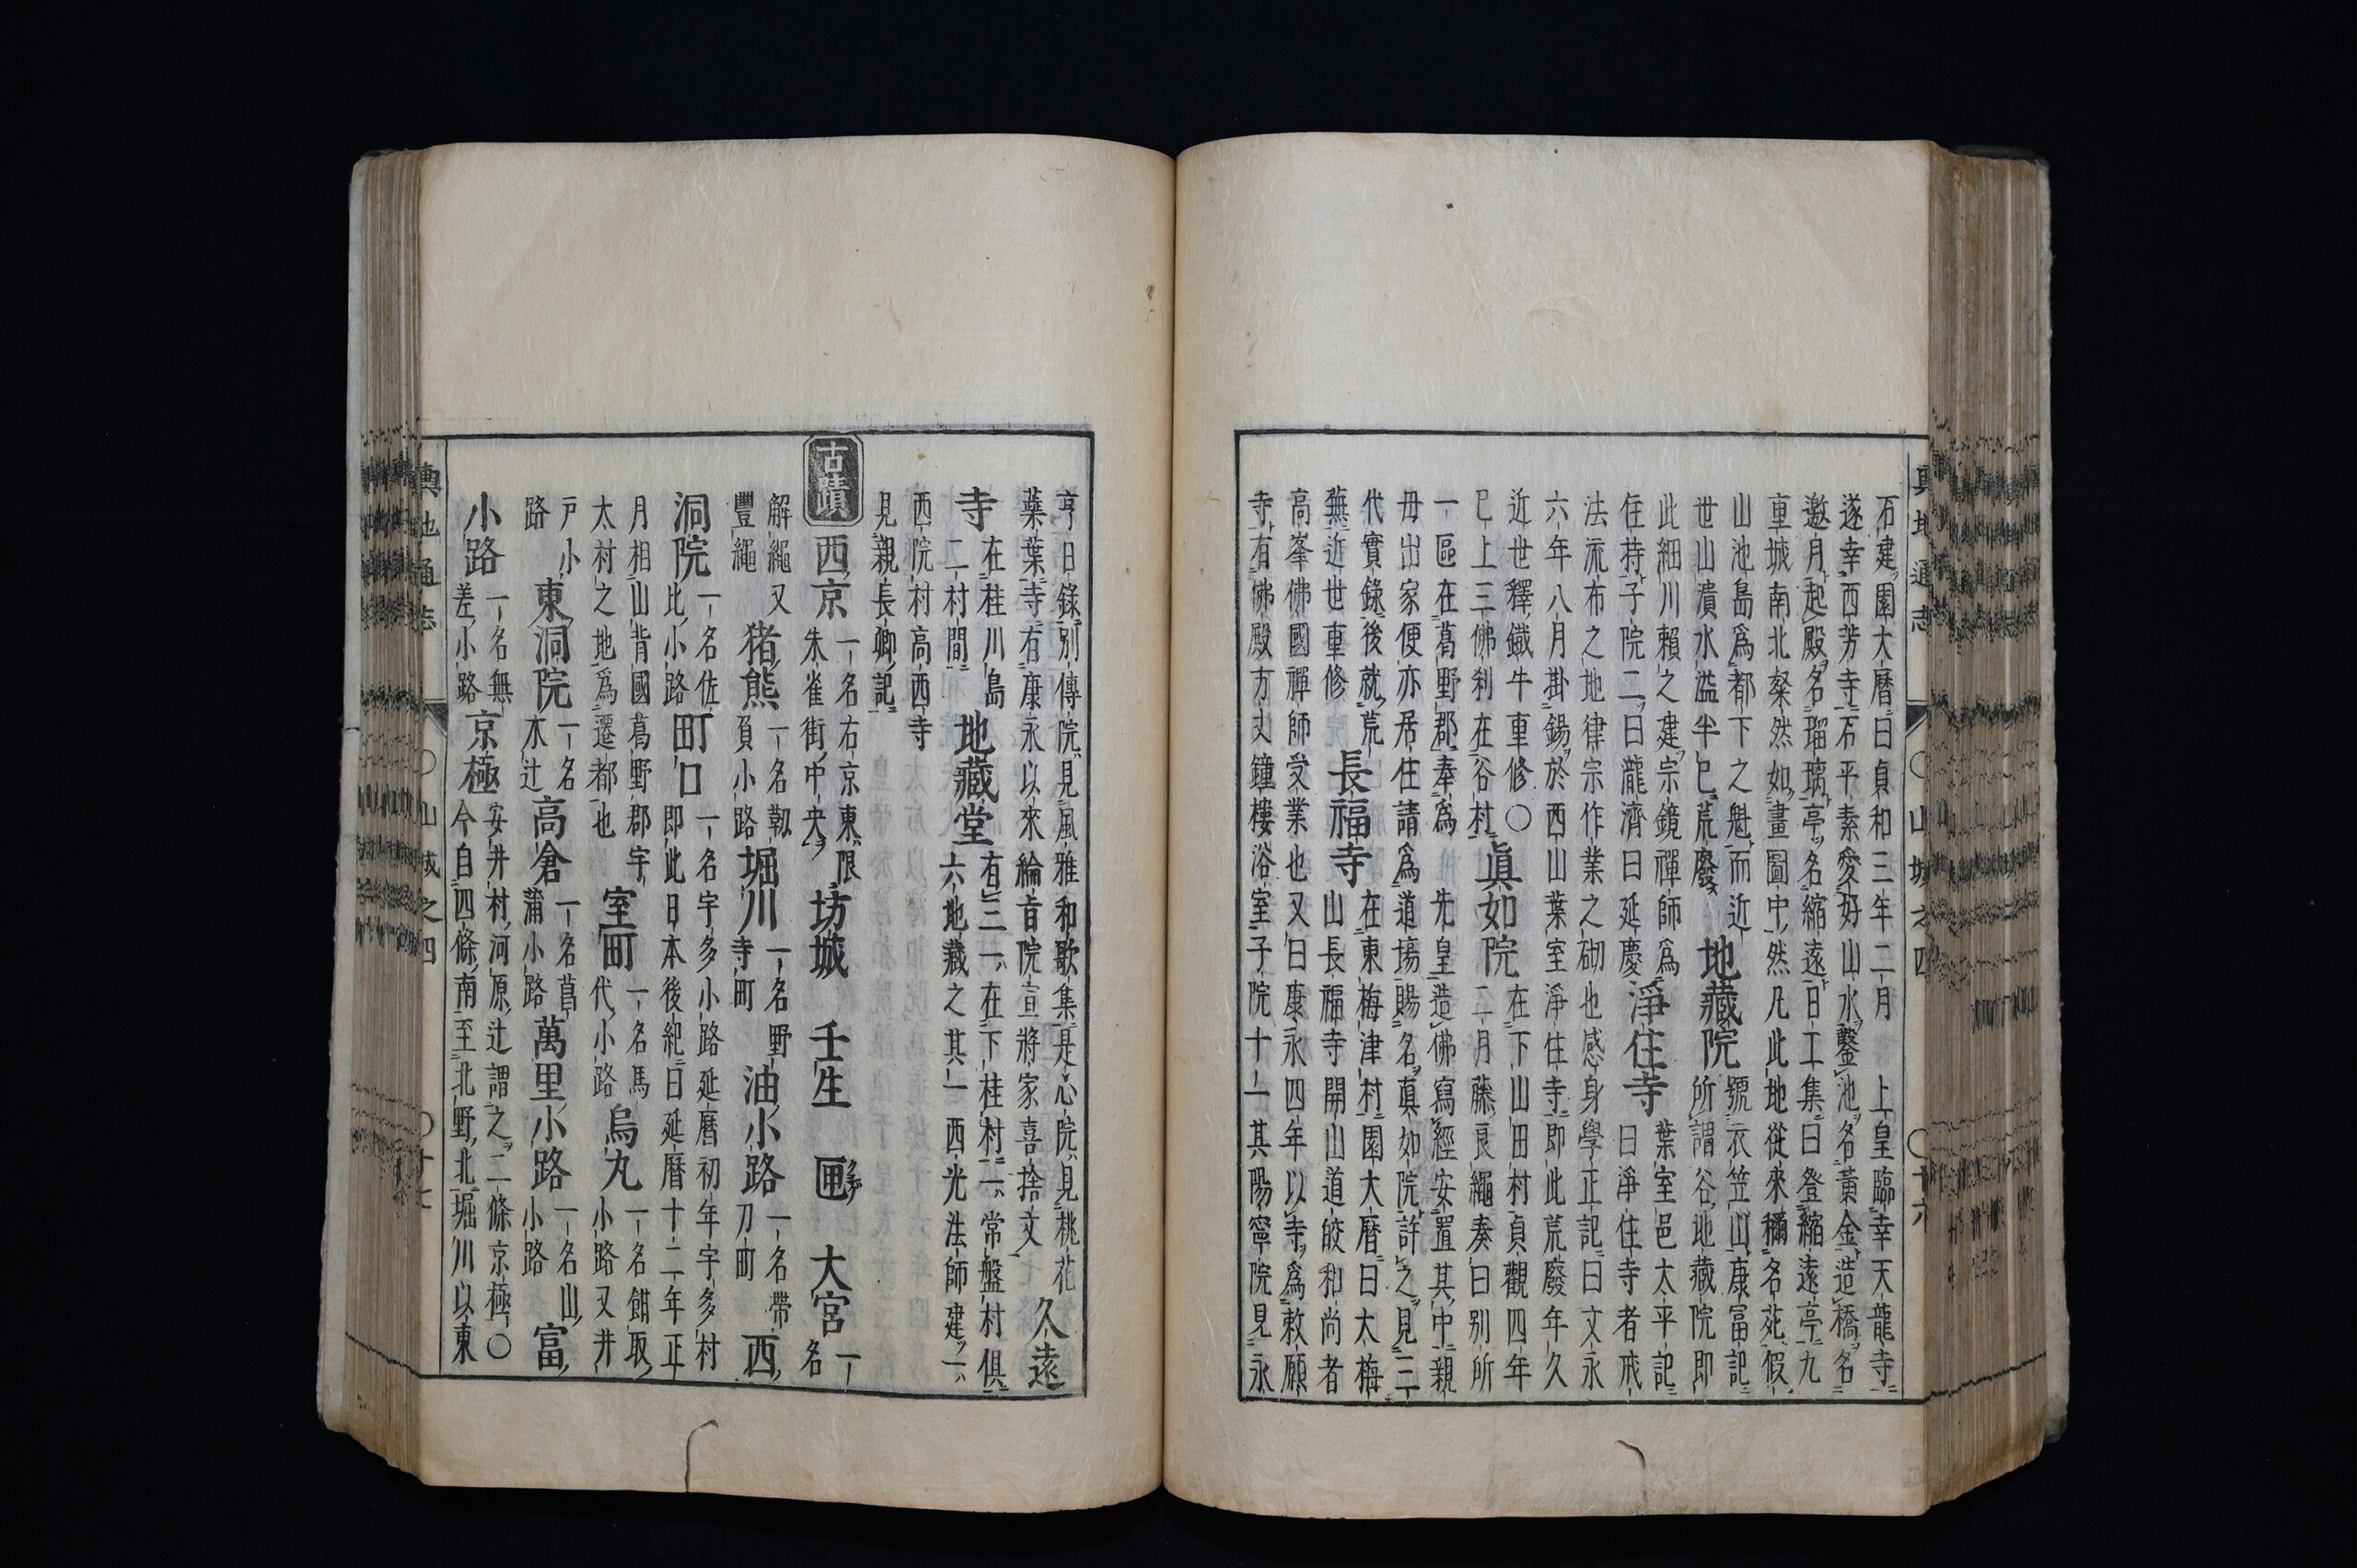 輿地通志 〇山城之四 〇廿六
石建園大暦曰貞和三年二月 上皇臨幸天龍寺
遂幸西芳寺石平素愛好山水鑿池名黃金造橋名
邀月起殿名瑠璃亭名縮遠日工集曰登縮遠亭九
重城南北粲然如畫圖中然凡此地從來稱名苑假
山池島爲都下之魁而近
世山潰水溢半已荒廢
地藏院
號衣笠山康冨記
所謂谷地藏院即
此細川賴之建宗鏡禪師爲
住持子院二曰瀧濟曰延慶
淨住寺
葉室邑太平記
曰淨住寺者戒
法流布之地律宗作業之砌也感身學正記曰文永
六年八月掛錫於西山葉室淨住寺即此荒廢年久
近世釋鐡牛重修〇
已上三佛刹在谷村
眞如院
在下山田村貞觀四年
二月藤良繩奏曰別所
一區在葛野郡奉爲 先皇造佛寫經安置其中親
母出家便亦居住請爲道塲賜名真如院許之見三
代實錄後就荒
蕪近世重修
長福寺
在東梅津村園大暦曰大梅
山長福寺開山道皎和尚者
高峯佛國禪師受業也又曰康永四年以寺爲敕願
寺有佛殿方丈鐘樓浴室子院十一其陽寧院見永
亨日錄別傳院見風雅和歌集是心院見桃花
葉葉寺有康永以來綸旨院宣將家喜捨文
久遠
寺
在桂川島
二村間
地藏堂
有三一在下桂村一常盤村俱
六地藏之其一西光法師建一
西院村高西寺
見親長卿記
古蹟
西京
一名右京東限
朱雀街中央
坊城 壬生 匣 大宮
一
名
解繩又
豐繩
猪熊
一名靱
負小路
堀川
一名野
寺町
油小路
一名帶
刀町
西
洞院
一名佐
比小路
町口
一名宇多小路延暦初年宇多村
即此日本後紀曰延暦十二年正
月相山背國葛野郡宇
太村之地爲遷都也
室町
一名馬
代小路
烏丸
一名餌取
小路又井
戸小
路
東洞院
一名
木辻
高倉
一名菖
蒲小路
萬里小路
一名山
小路
富
小路
一名無
差小路
京極
安井村河原辻謂之二條京極〇
今自四條南至北野北堀川以東
輿地通志 〇山城之四 〇廿七